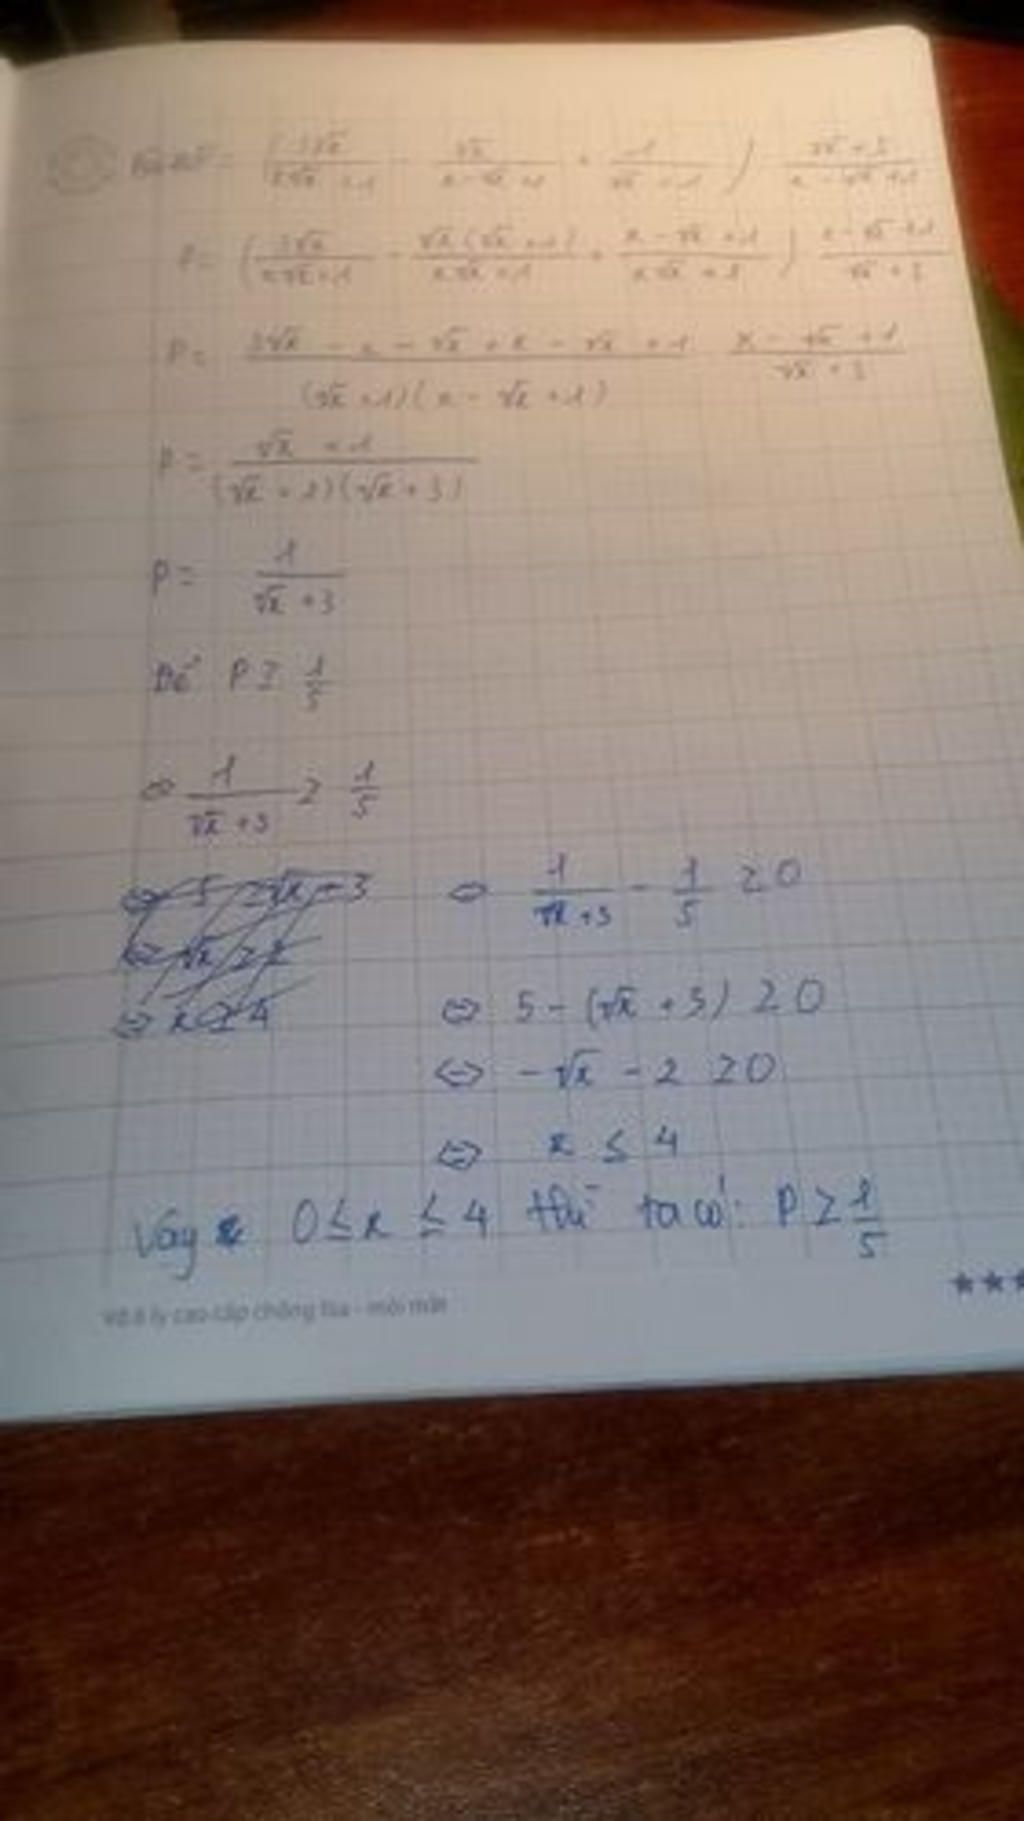 P = (3√x / x√x + 1 - √x / x - √x + 1 + 1 / √x + 1) √x + 3 / x - √x + 1
P = (3√x / x√x + 1 - √x(√x + 1) / x√x + 1 + x - √x + 1 / x√x + 1) x - √x + 1 / √x + 3
P = 3√x - x - √x + x - √x + 1 / (√x + 1)(x - √x + 1) x - √x + 1 / √x + 3
P = √x + 1 / (√x + 1)(√x + 3)
P = 1 / √x + 3
Để P ≥ 1/5
⇔ 1 / √x + 3 ≥ 1/5
⇔ 1 / √x + 3 - 1/5 ≥ 0
⇔ 5 - (√x + 3) ≥ 0
⇔ -√x - 2 ≥ 0
⇔ x ≤ 4
Vậy 0 ≤ x ≤ 4 thì ta có: P ≥ 1/5
Vở ô ly cao cấp chống lóa - mỏi mắt
★★★